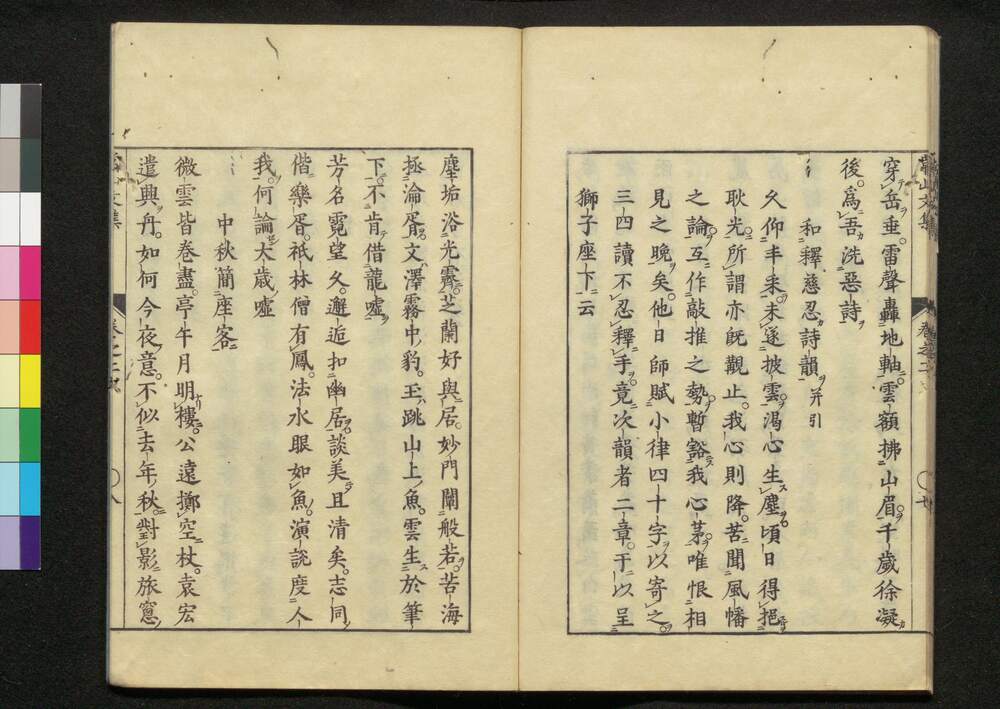 穿岳垂雷聲轟地軸雲額拂山眉千歳徐凝
後爲吾洗惡詩
和釋慈忍詩韻并引
久仰丰釆未遂披雲渴心生塵頃日得挹
耿光所謂亦既觀止我心則降苦聞風幡
之論互作敲推之勢暫豁我心茅唯恨相
見之晩矣他日師賦小律四十字以寄之
三四讀不忍釋手竟次韻者二章于以呈
獅子座下云
塵垢浴光霽芝蘭好與居妙門闡般若苦海
拯淪胥文澤霧中豹王跳山上魚雲生於筆
下不肯借龍噓
芳名霓望久邂逅扣幽居談美且清矣志同
偕樂胥祇林僧有鳳法水眼如魚演説度人
我何論大歳噓
中秋簡座客
微雲皆卷盡亭午月明樓公遠擲空杖袁宏
遣興舟如何今夜意不似去年秋對影旅窓
卷之二
八